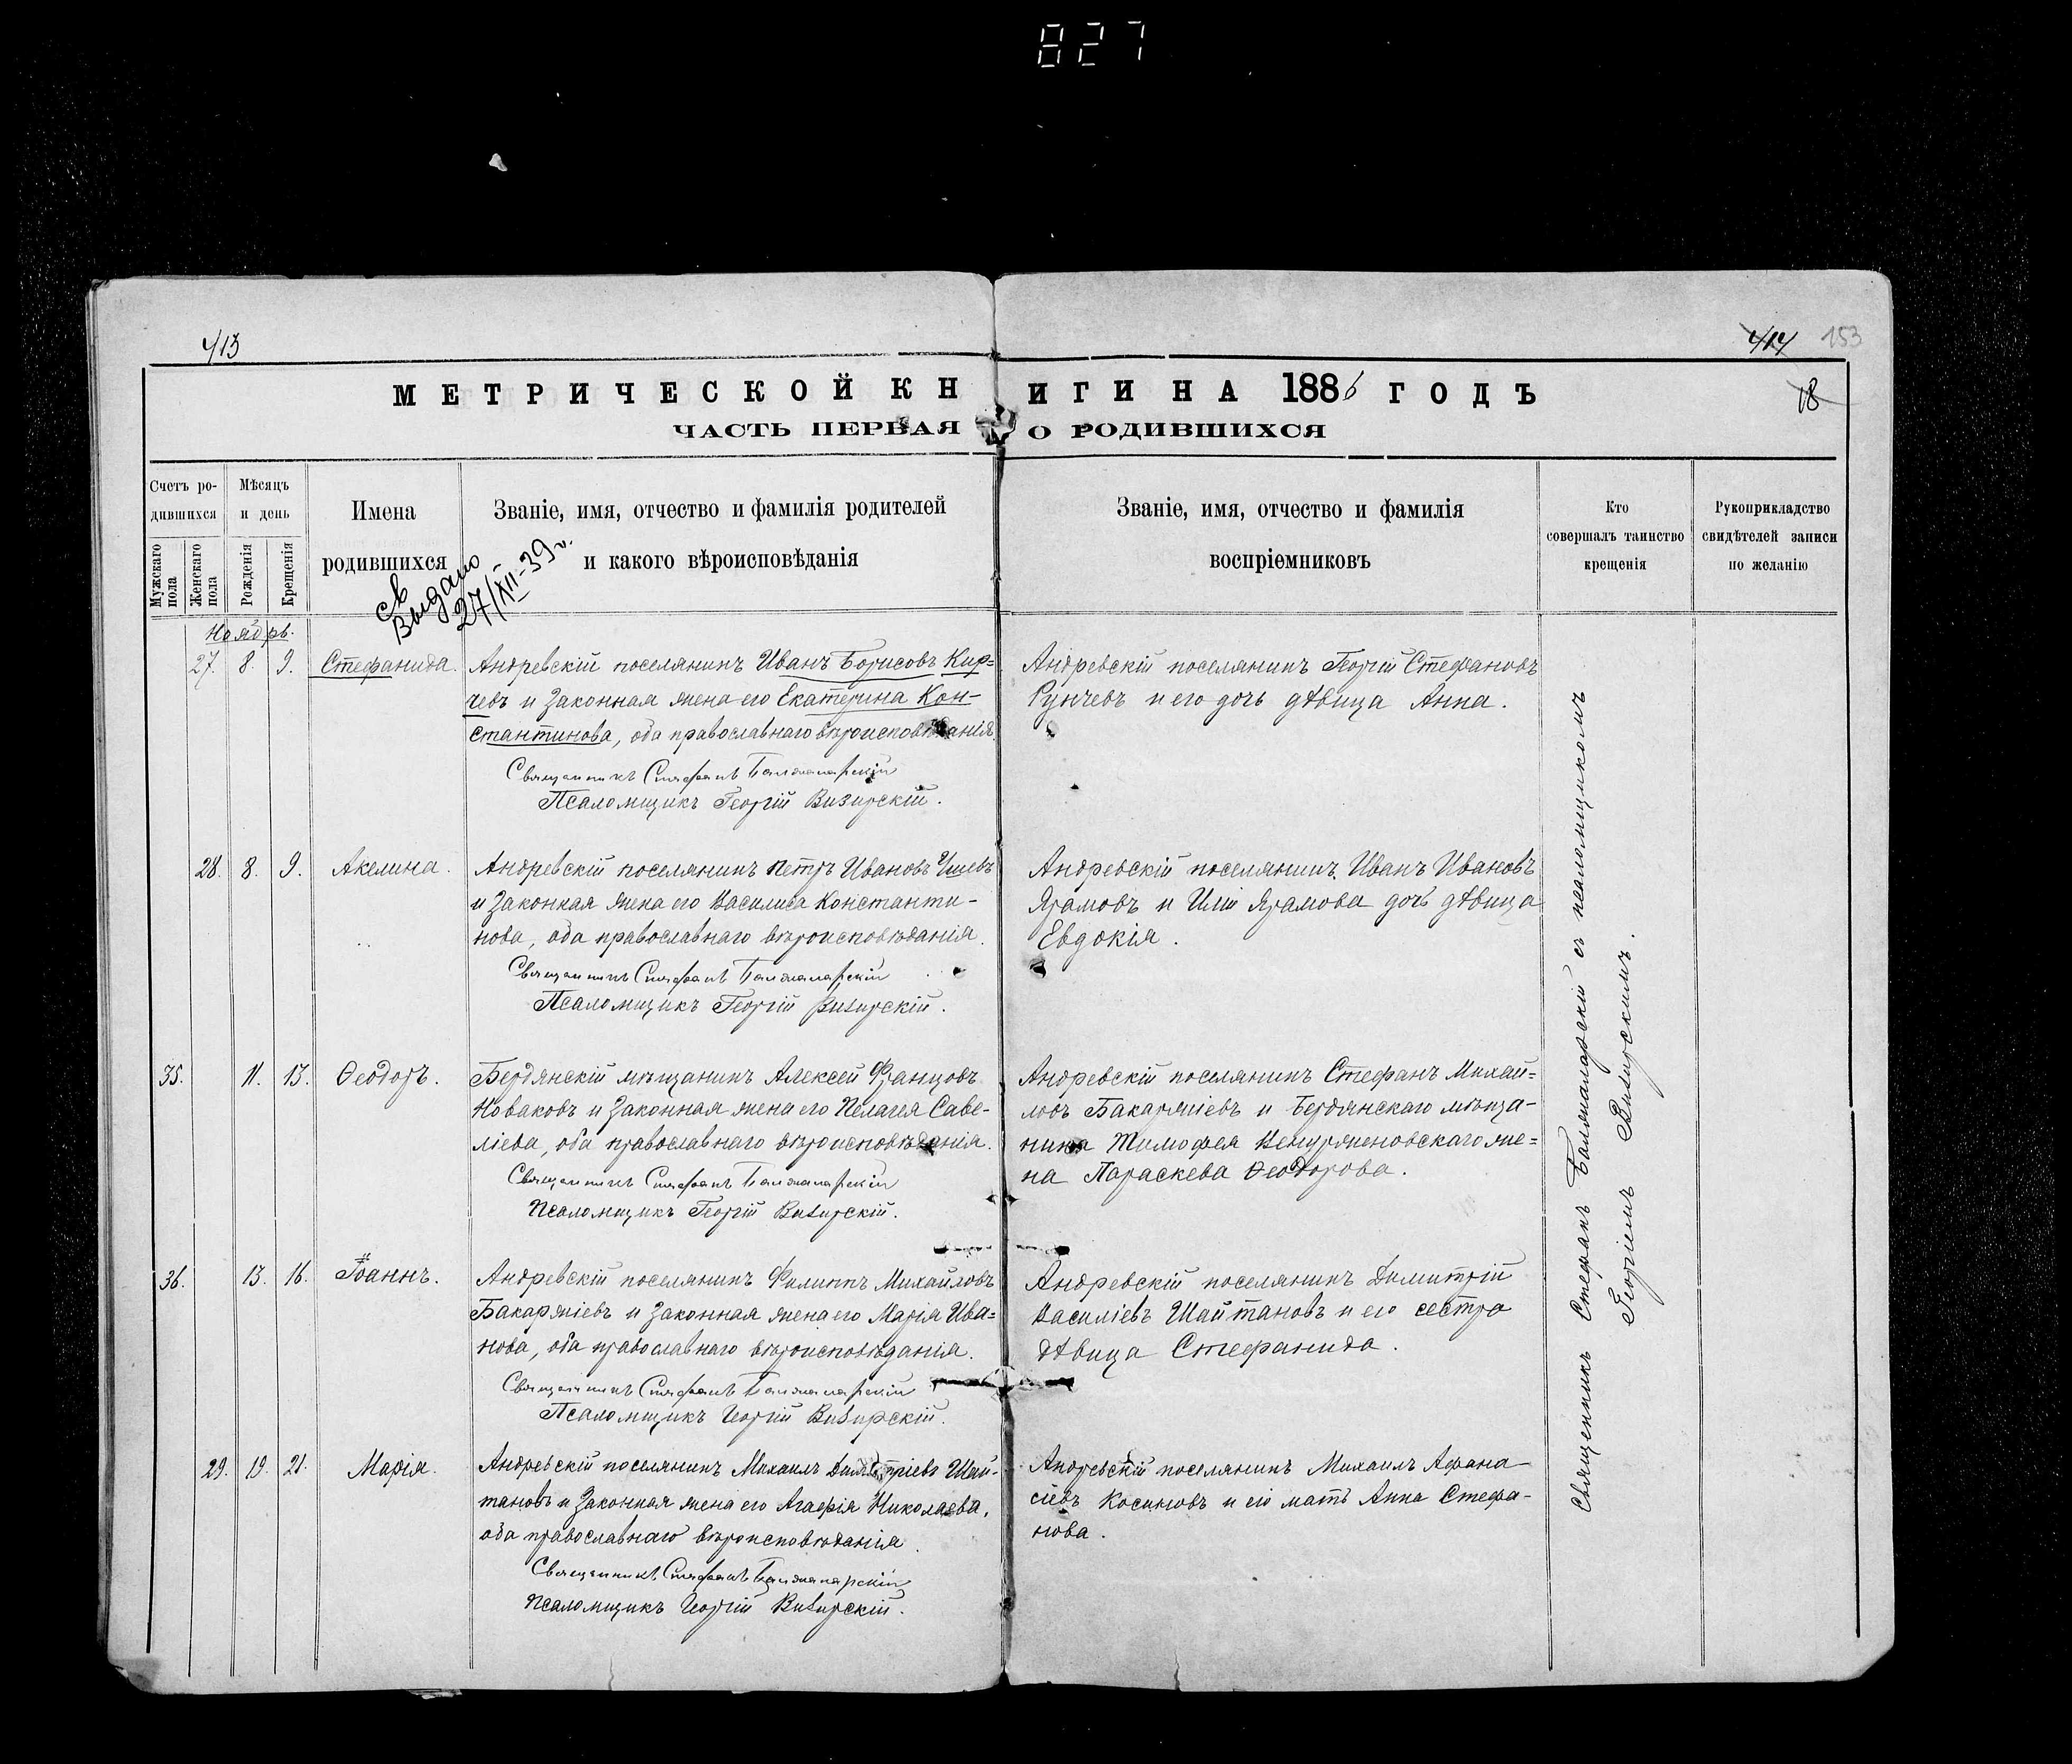 827
413
414 153
МЕТРИЧЕСКОЙ КНИГИ НА 1886 ГОДЪ
18
ЧАСТЬ ПЕРВАЯ О РОДИВШИХСЯ
Счетъ родившихся
Мужскаго пола
Женскаго пола
Мѣсяцъ и день
Рожденія
Крещенія
Имена родившихся
Званіе, имя, отчество и фамилія родителей
и какого вѣроисповѣданія
Званіе, имя, отчество и фамилія
воспріемниковъ
Кто
совершалъ таинство
крещенія
Рукоприкладство
свидѣтелей записи
по желанію
св
Выдано
27/XII-39 г.
Ноябрь.
27. 8. 9. Стефанида.
Андревскій поселянинъ Иванъ Борисовъ Кир=
чевъ и законная жена его Екатерина Кон-
стантинова, оба православнаго вѣроисповѣданія.
Священникъ Стефанъ Балжаларскій
Псаломщикъ Георгій Визирскій.
Андревскій поселянинъ Георгій Стефановъ
Рунчевъ и его дочь дѣвица Анна.
28. 8. 9. Акелина.
Андревскій поселянинъ Петръ Ивановъ
и законная жена его Василиса Константи-
нова, оба православнаго вѣроисповѣданія.
Священникъ Стефанъ Балжаларскій
Псаломщикъ Георгій Визирскій.
Андревскій поселянинъ Иванъ Ивановъ
Ярамовъ и Иліи Ярамова дочь дѣвица
Евдокія.
35. 11. 13. Ѳеодоръ.
Бердянскій мѣщанинъ Алексей Францовъ
Новаковъ и законная жена его Пелагея Саве-
ліева, оба православнаго вѣроисповѣданія.
Священникъ Стефанъ Балжаларскій
Псаломщикъ Георгій Визирскій.
Андревскій поселянинъ Стефанъ Михай=
ловъ Бакаржіевъ и Бердянскаго мѣща-
нина Тимофея же=
на Параскева Ѳеодорова.
36. 13. 16. Іоаннъ.
Андревскій поселянинъ Филиппъ Михайловъ
Бакаржіевъ и законная жена его Марія Ива=
нова, оба православнаго вѣроисповѣданія.
Священникъ Стефанъ Балжаларскій
Псаломщикъ Георгій Визирскій.
Андревскій поселянинъ Димитрій
Василіевъ Шайтановъ и его сестра
дѣвица Стефанида.
29. 19. 21. Марія.
Андревскій поселянинъ Михаилъ Димитріевъ Шай-
тановъ и законная жена его Агафія Николаева,
оба православнаго вѣроисповѣданія.
Священникъ Стефанъ Балжаларскій
Псаломщикъ Георгій Визирскій.
Андревскій поселянинъ Михаилъ Афана-
сіевъ Косиновъ и его мать Анна Стефа-
нова.
Священникъ Стефанъ Балжаларскій съ псаломщикомъ
Георгіемъ Визирскимъ.